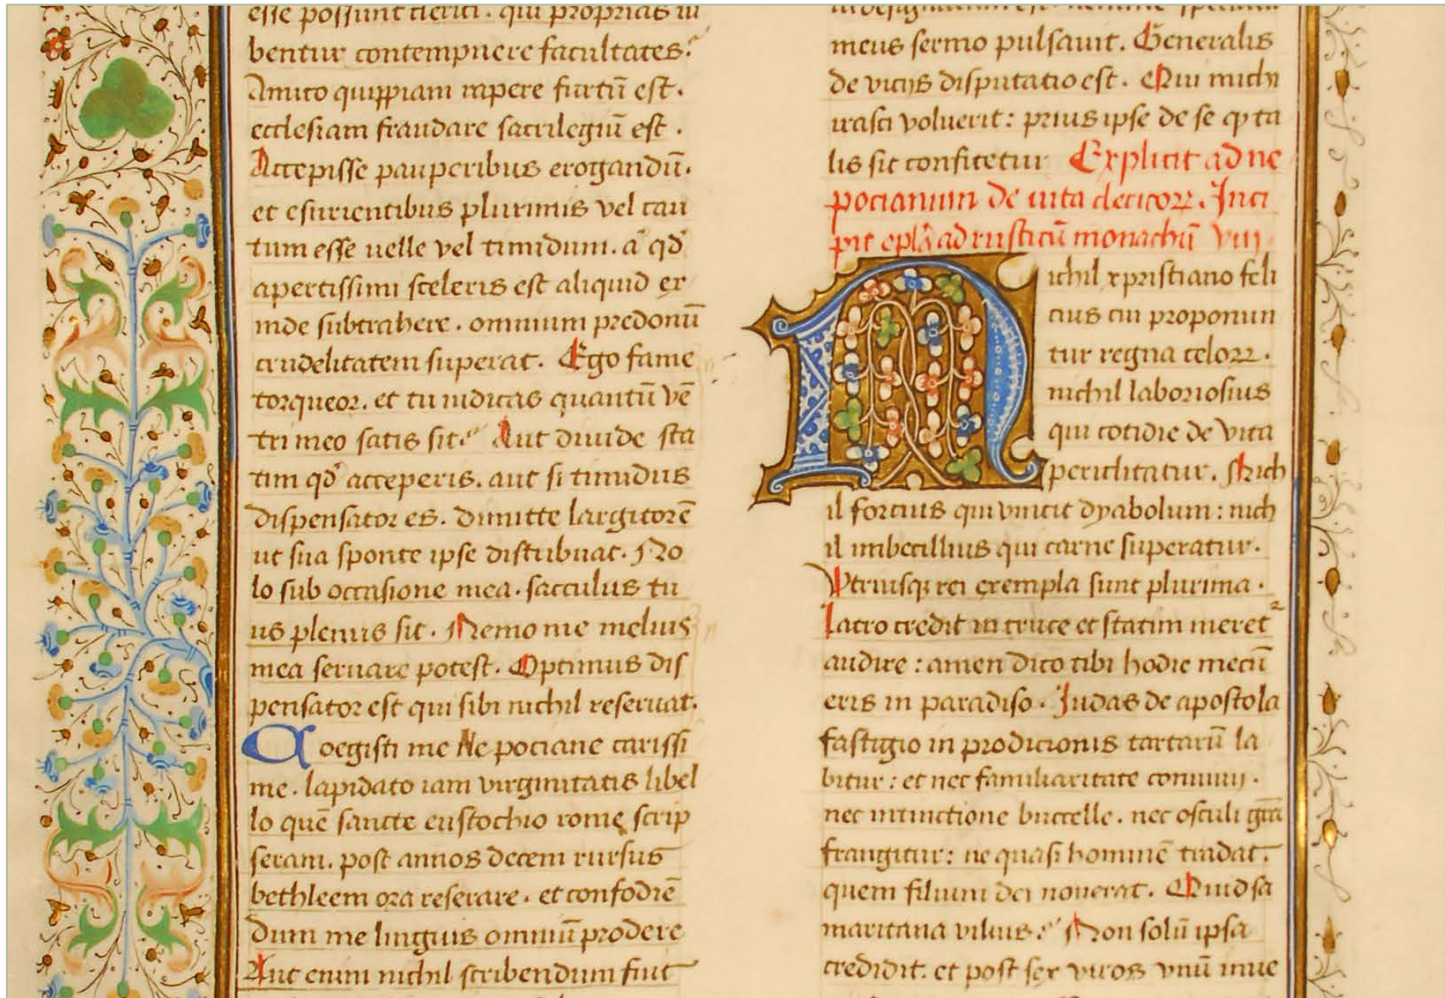 esse possunt clerici. qui proprias iu
bentur contempnere facultates?
Amico quippiam rapere furtū est.
ecclesiam fraudare sacrilegiū est.
Accepisse pauperibus erogandū.
et esurientibus plurimis vel cau
tum esse uelle vel timidum. a᷑ qđ
apertissimi sceleris est aliquid ex
inde subtrahere. omnium predonū
crudelitatem superat. Ego fame
torqueor. et tu iudicas quantū vē
tri meo satis sit? Aut diuide sta
tim qđ acceperis. aut si timidus
dispensator es. dimitte largitorē
ut sua sponte ipse distribuat. No
lo sub occasione mea. sacculus tu
us plenus sit. Nemo me melius
mea seruare potest. Optimus dis
pensator est qui sibi nichil reseruat.
Coegisti me Ne pociane carissi
me. lapidato iam virginitatis libel
lo quē sancte eustochio romę scrip
seram. post annos decem rursus
bethleem ora reserare. et confodiē
dum me linguis omniū prodere
Aut enim nichil scribendum fuit
meus sermo pulsauit. Generalis
de vicijs disputatio est. Qui michi
irasci voluerit: prius ipse de se ꝙ ta
lis sit confitetur Explicit ad ne
pocianum de uita clericoꝝ. Inci
pit epl̄a ad rusticū monachū viii
Nichil xpristiano feli
cius cui promittun
tur regna celoꝝ.
nichil laboriosius
qui cotidie de vita
periclitatur. Nich
il forcius qui vincit dyabolum: nich
il imbecillius qui carne superatur.
Vtriusqꝫ rei exempla sunt plurima.
Latro credit in cruce et statim meret᷑
audire: amen dico tibi hodie mecū
eris in paradiso. Iudas de apostola
fastigio in prodicionis tartarū la
bitur: et nec familiaritate conuiuij.
nec intinctione buccelle. nec osculi grā
frangitur: ne quasi hominē tradat.
quem filium dei nouerat. Quid sa
maritana vilius? Non solū ipsa
credidit. et post sex viros vnū inue